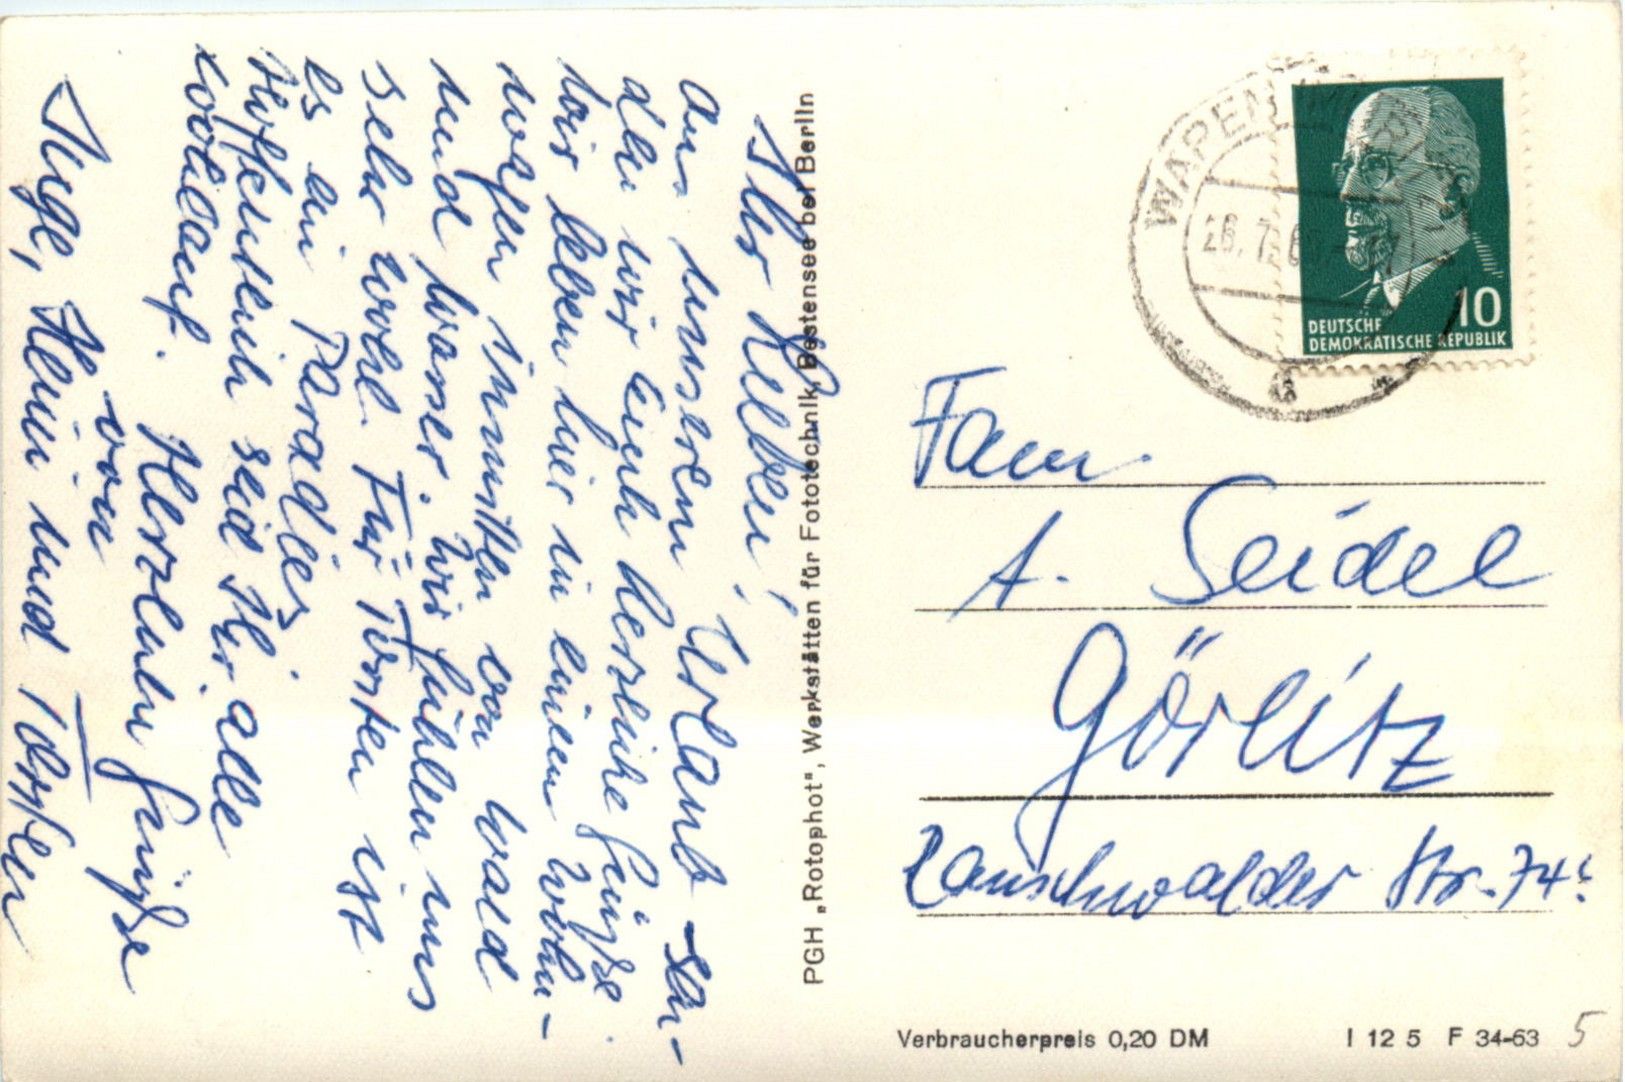 Ihr Lieben!
Aus unserem Urlaub sen-
den wir Euch herzliche Grüße.
Wir leben hier in einem Wohn-
wagen inmitten von Wald
und Wasser. Wir fühlen uns
sehr wohl. Für Torsten ist
es ein Paradies.
Hoffentlich seid Ihr alle
wohlauf. Herzlich Grüße
von
Inge, Heini und Torsten
PGH „Rotophot", Werkstätten für Fototechnik, Bestensee bei Berlin
WAREN (MÜRITZ)
26.7.6
a
10
DEUTSCHE
DEMOKRATISCHE REPUBLIK
Fam.
A. Seidel
Görlitz
Rauschwalder Str. 74
Verbraucherpreis 0,20 DM I 12 5 F 34-63 5